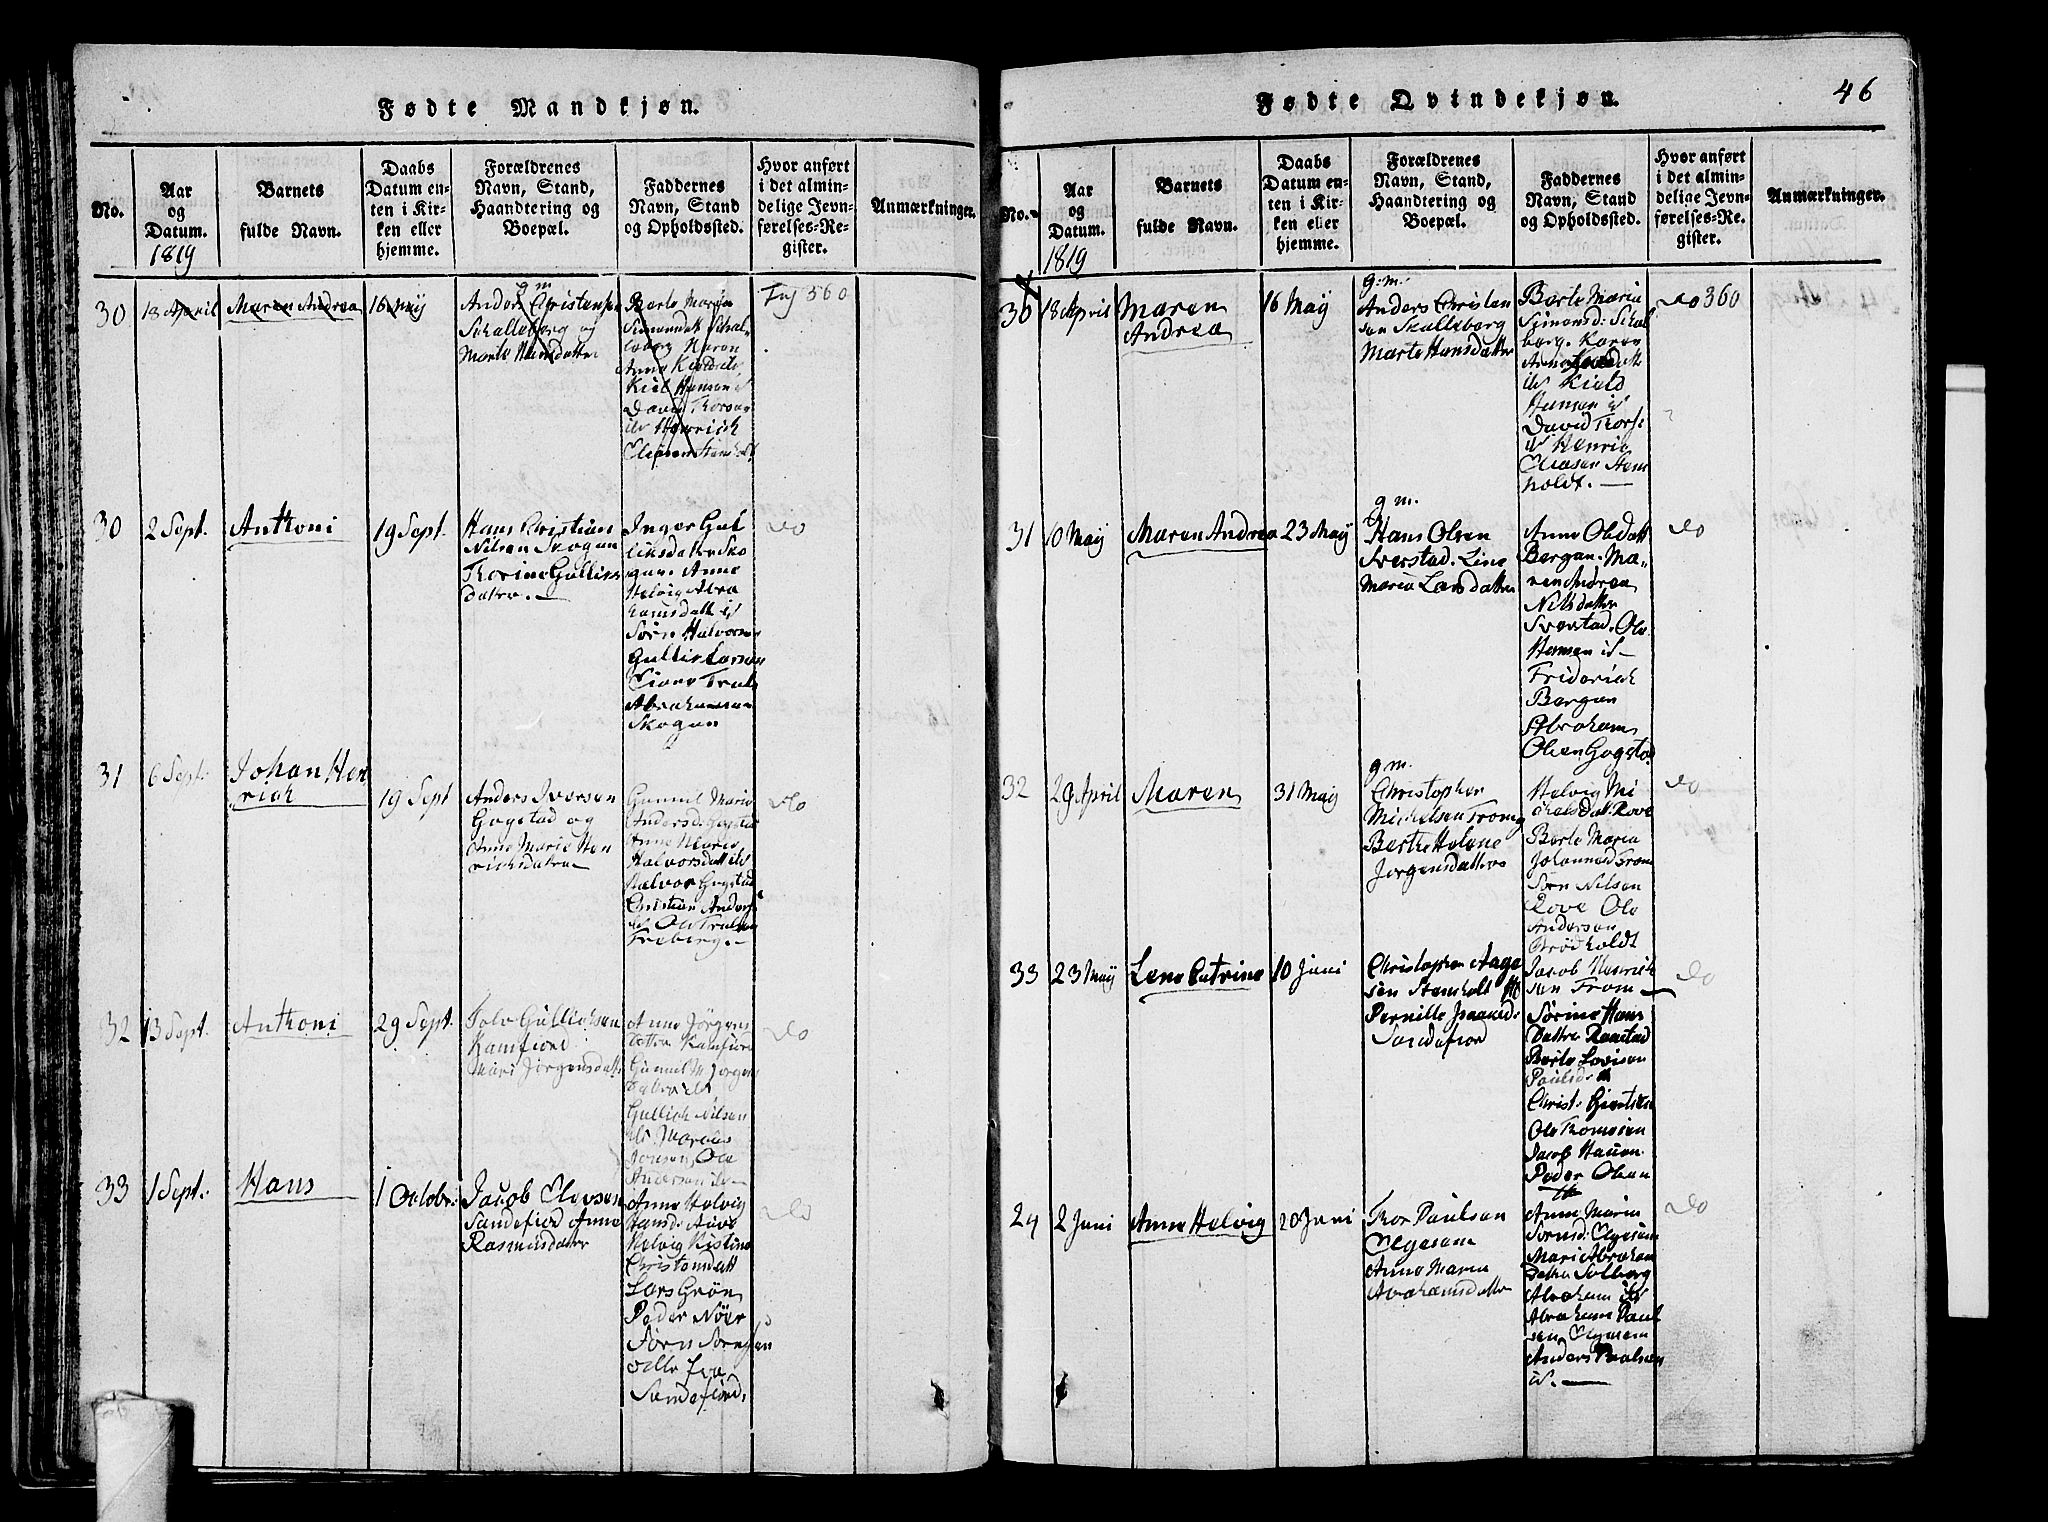 Fødte Mandkjøn.
No.
Aar
og
Datum.
1819
Barnets
fulde Navn.
Daabs
Datum en-
ten i Kir-
ken eller
hjemme.
Forældrenes
Navn, Stand,
Haandtering og
Boepæl.
Faddernes
Navn, Stand
og Opholdssted.
Hvor anført
i det almin-
delige Jevn-
førelses-Re-
gister.
Anmærkninger.
30
18 April
Maren Andrea
16 May
g m
Anders Christense
Skalleberg og
Marte Hansdatter
Berte Maria
Simonsdt Skal
leberg Karen
Anne
Kield Hansen
David Thorsen
ib Henrich
Eliasen
Fol 360
30
2 Sept.
Anthoni
19 Sept.
Hans Christian
Nilsen Skogan
Thorine Gullics
datre.
Inger Gul
liksdatre Sko
gan. Anne
Helvig Abra
hamsdatt ib
Sørn Halvorsen
Gullik Larsen
Truls
Abrahamsen
Skogan
do
31
6 Sept.
Johan Hen
rich
19 Sept
Anders Iversen
Gogstad og
Anne Marie Hen
richsdatre
Gunnil Marie
Andersd: Gogstad
Anne Marie
Halvorsdatt ib
Halvor Gogstad
Christian Anders
ib Ole Trulsen
Freberg.
do
32
13 Sept.
Anthoni
29 Sept.
Tolv Gullichsen
Kamfiord
Mari Jørgensdatt
Anne Jørgens
dattre Kamfior
Gunnil M Jorgens
Gullich Nilsen
Jonsen, Ole
Andersen ib
do
33
1 Sept.
Hans
1 Octobr:
Jacob Elevsen
Sandefiord Anne
Rasmusdatter
Anne Helvig
Hansd:
Helvig Kistine
Christensdatt
Lars Grøn
Peder Nöer
Sørn Sørensen
alle fra
Sandefiord.
do
Fødte Qvindekjøn.
46
No.
Aar
og
Datum.
1819
Barnets
fulde Navn.
Daabs
Datum en-
ten i Kir-
ken eller
hjemme.
Forældrenes
Navn, Stand,
Haandtering og
Boepæl.
Faddernes
Navn, Stand
og Opholdssted.
Hvor anført
i det almin-
delige Jevn-
førelses-Re-
gister.
Anmærkninger.
30
18 April
Maren
Andrea
16 May
g. m.
Anders Christen
sen Skalleberg
Marte Hansdatter
Berte Maria
Simonsd: Skal
berg. Karen
Anne
ib Kield
Hansen ib
David Thors:
ib Henric
Eliasen Stem
holdt.
do 360
31
10 May
Maren Andrea
23 May
g m.
Hans Olsen
Sverstad. Line
Maria Larsdatter
Anne Olsdatt
Bergan. Ma-
ren Andrea
Nilsdatter
Sverstad. Ole
Hansen ib
Friderich
Bergan
Abraham
Olsen Gogstad
do
32
29 April
Maren
31 May
g. m.
Christopher
Michelsen From
Berthe Helene
Jørgensdatter
Helvig Mi
chelsdatt. Rove
Berte Maria
Johannesd From
Sørn Nilsen
Rove Ole
Andersen
Grödholdt
do
33
23 May
Lene Catrine
10 Juni
Christopher Aage
sen Stemholt
Pernille Isaacsd:
Sandefiord
Jacob Henrich
sen From
Sørine Hans
Dattre Raastad
Berte Lovisen
Paulsd:
Christ: Giertsen
Ole Thomesen
Jacob Hauen
Peder Olsen
do
24
2 Juni
Anne Helvig
20 Juni
Thor Paulsen
Elgesem
Anne Maria
Abrahamsdatter
Anne Maria
Sørnsd: Elgesem
Mari Abraham
Datre Solberg
Abraham ib
Abraham Paul
sen Elgesem
Anders Paulsen
ib.
do